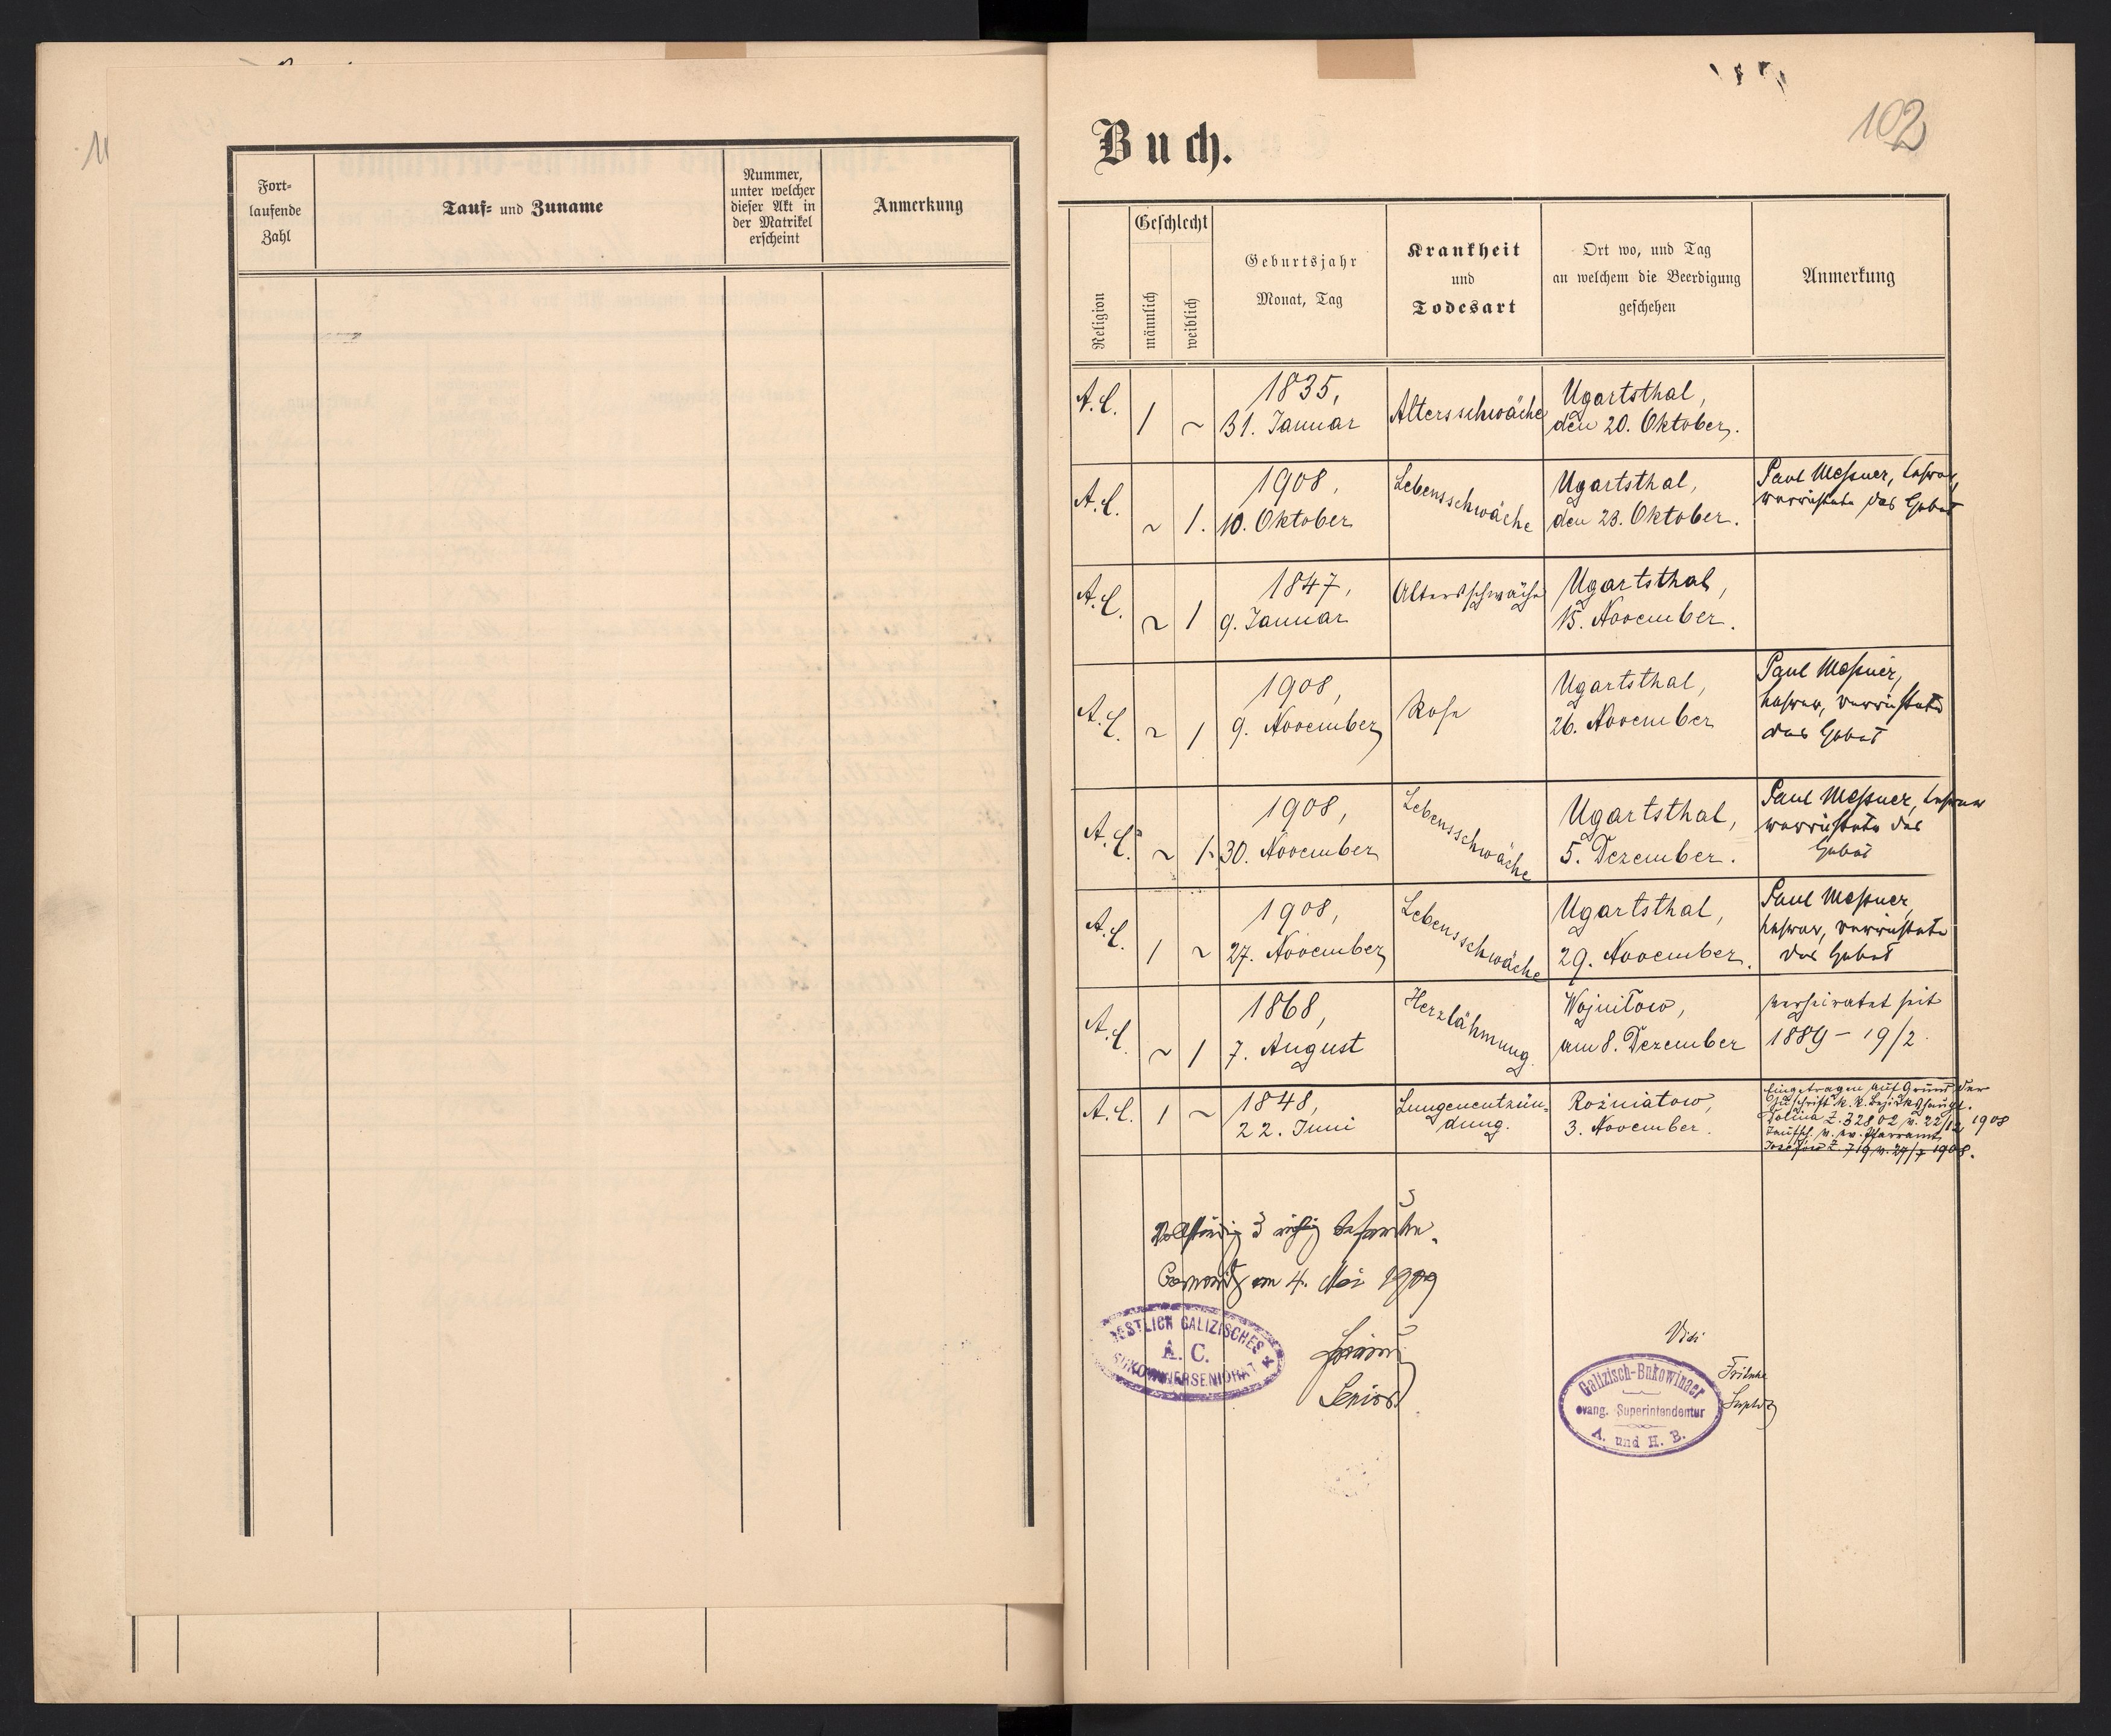 Fort-
laufende
Zahl
Tauf- und Zuname
Nummer,
unter welcher
dieser Akt in
der Matrikel
erscheint
Anmerkung
102
Buch.
Religion
Geschlecht
männlich
weiblich
Geburtsjahr
Monat, Tag
Krankheit
und
Todesart
Ort wo, und Tag
an welchem die Beerdigung
geschehen
Anmerkung
A.C. 1 ~ 1835, 31. Januar Altersschwäche Ugartsthal, den 20. Oktober.
A.C. ~ 1. 1908, 10. Oktober Lebensschwäche Ugartsthal, den 23. Oktober.
Paul Meßner, Lehrer,
verrichtete das Gebet
A.C. ~ 1 1847, 9. Januar Altersschwäche Ugartsthal, 15. November.
A.C. ~ 1 1908, 9. November Rose Ugartsthal, 26. November
Paul Meßner,
Lehrer, verrichtete
das Gebet
A.C. ~ 1. 30. November 1908, Lebensschwäche Ugartsthal, 5. Dezember.
Paul Meßner, Lehrer
verrichtete das
Gebet
A.C. 1 ~ 1908, 27. November Lebensschwäche Ugartsthal, 29. November.
Paul Meßner,
Lehrer, verrichtete
das Gebet
A.C. ~ 1 1868, 7. August Herzlähmung Wojniłow, am 8. Dezember
verheiratet seit
1889 - 19/2.
A.C. 1 ~ 1848, 22. Juni Lungenentzün- dung. Rożniatow, 3. November.
Eingetragen auf Grund der
Zuschrift k. k. Bezirkshaupt.
Dolina Z. 32802 v. 22/12 1908
Taufsch. v. ev. Pfarramt
Josefow Z. 719 v. 27/7 1908.
Vollständig & richtig befunden.
Czernowitz am 4. Mai 1909
OESTLICH GALIZISCHES
A. C.
BUKOWINERSENIORAT
Senior
Vidi
Galizisch-Bukowinaer
evang. Superintendentur
A. und H. B.
Fritsche
Suptdt